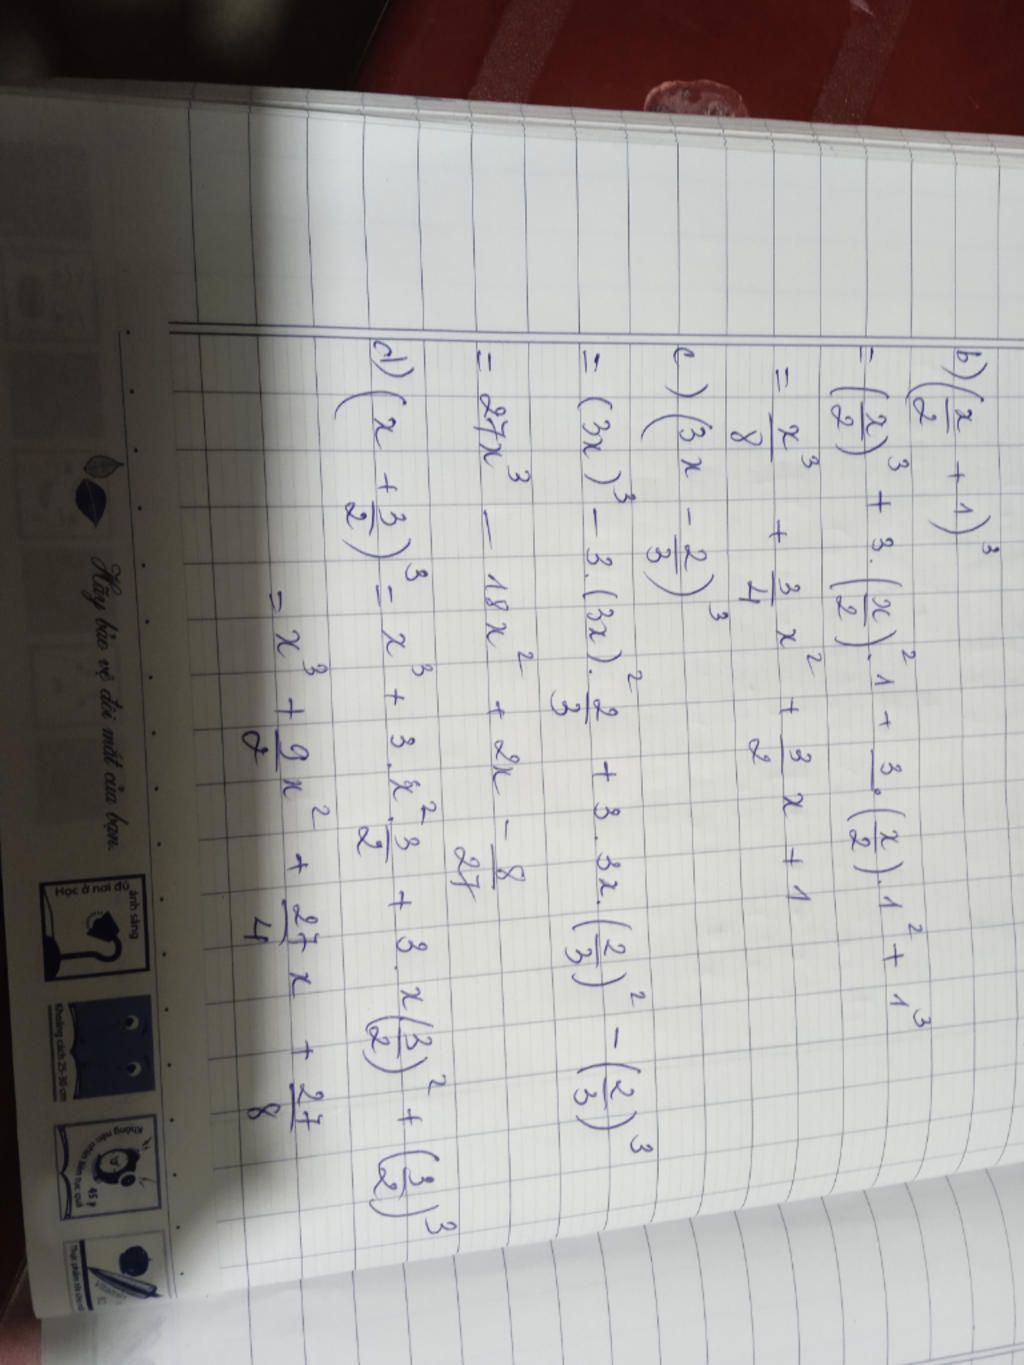 b) (x/2 + 1)³
= (x/2)³ + 3.(x/2)².1 + 3.(x/2).1² + 1³
= x³/8 + 3/4 x² + 3/2 x + 1
c) (3x - 2/3)³
= (3x)³ - 3.(3x)².2/3 + 3.3x.(2/3)² - (2/3)³
= 27x³ - 18x² + 2x - 8/27
d) (x + 3/2)³ = x³ + 3.x².3/2 + 3.x(3/2)² + (3/2)³
= x³ + 9/2 x² + 27/4 x + 27/8
Hãy bảo vệ đôi mắt của bạn.
Học ở nơi đủ ánh sáng
Khoảng cách 25-30 cm
Không nên nhìn liên tục quá 45 p